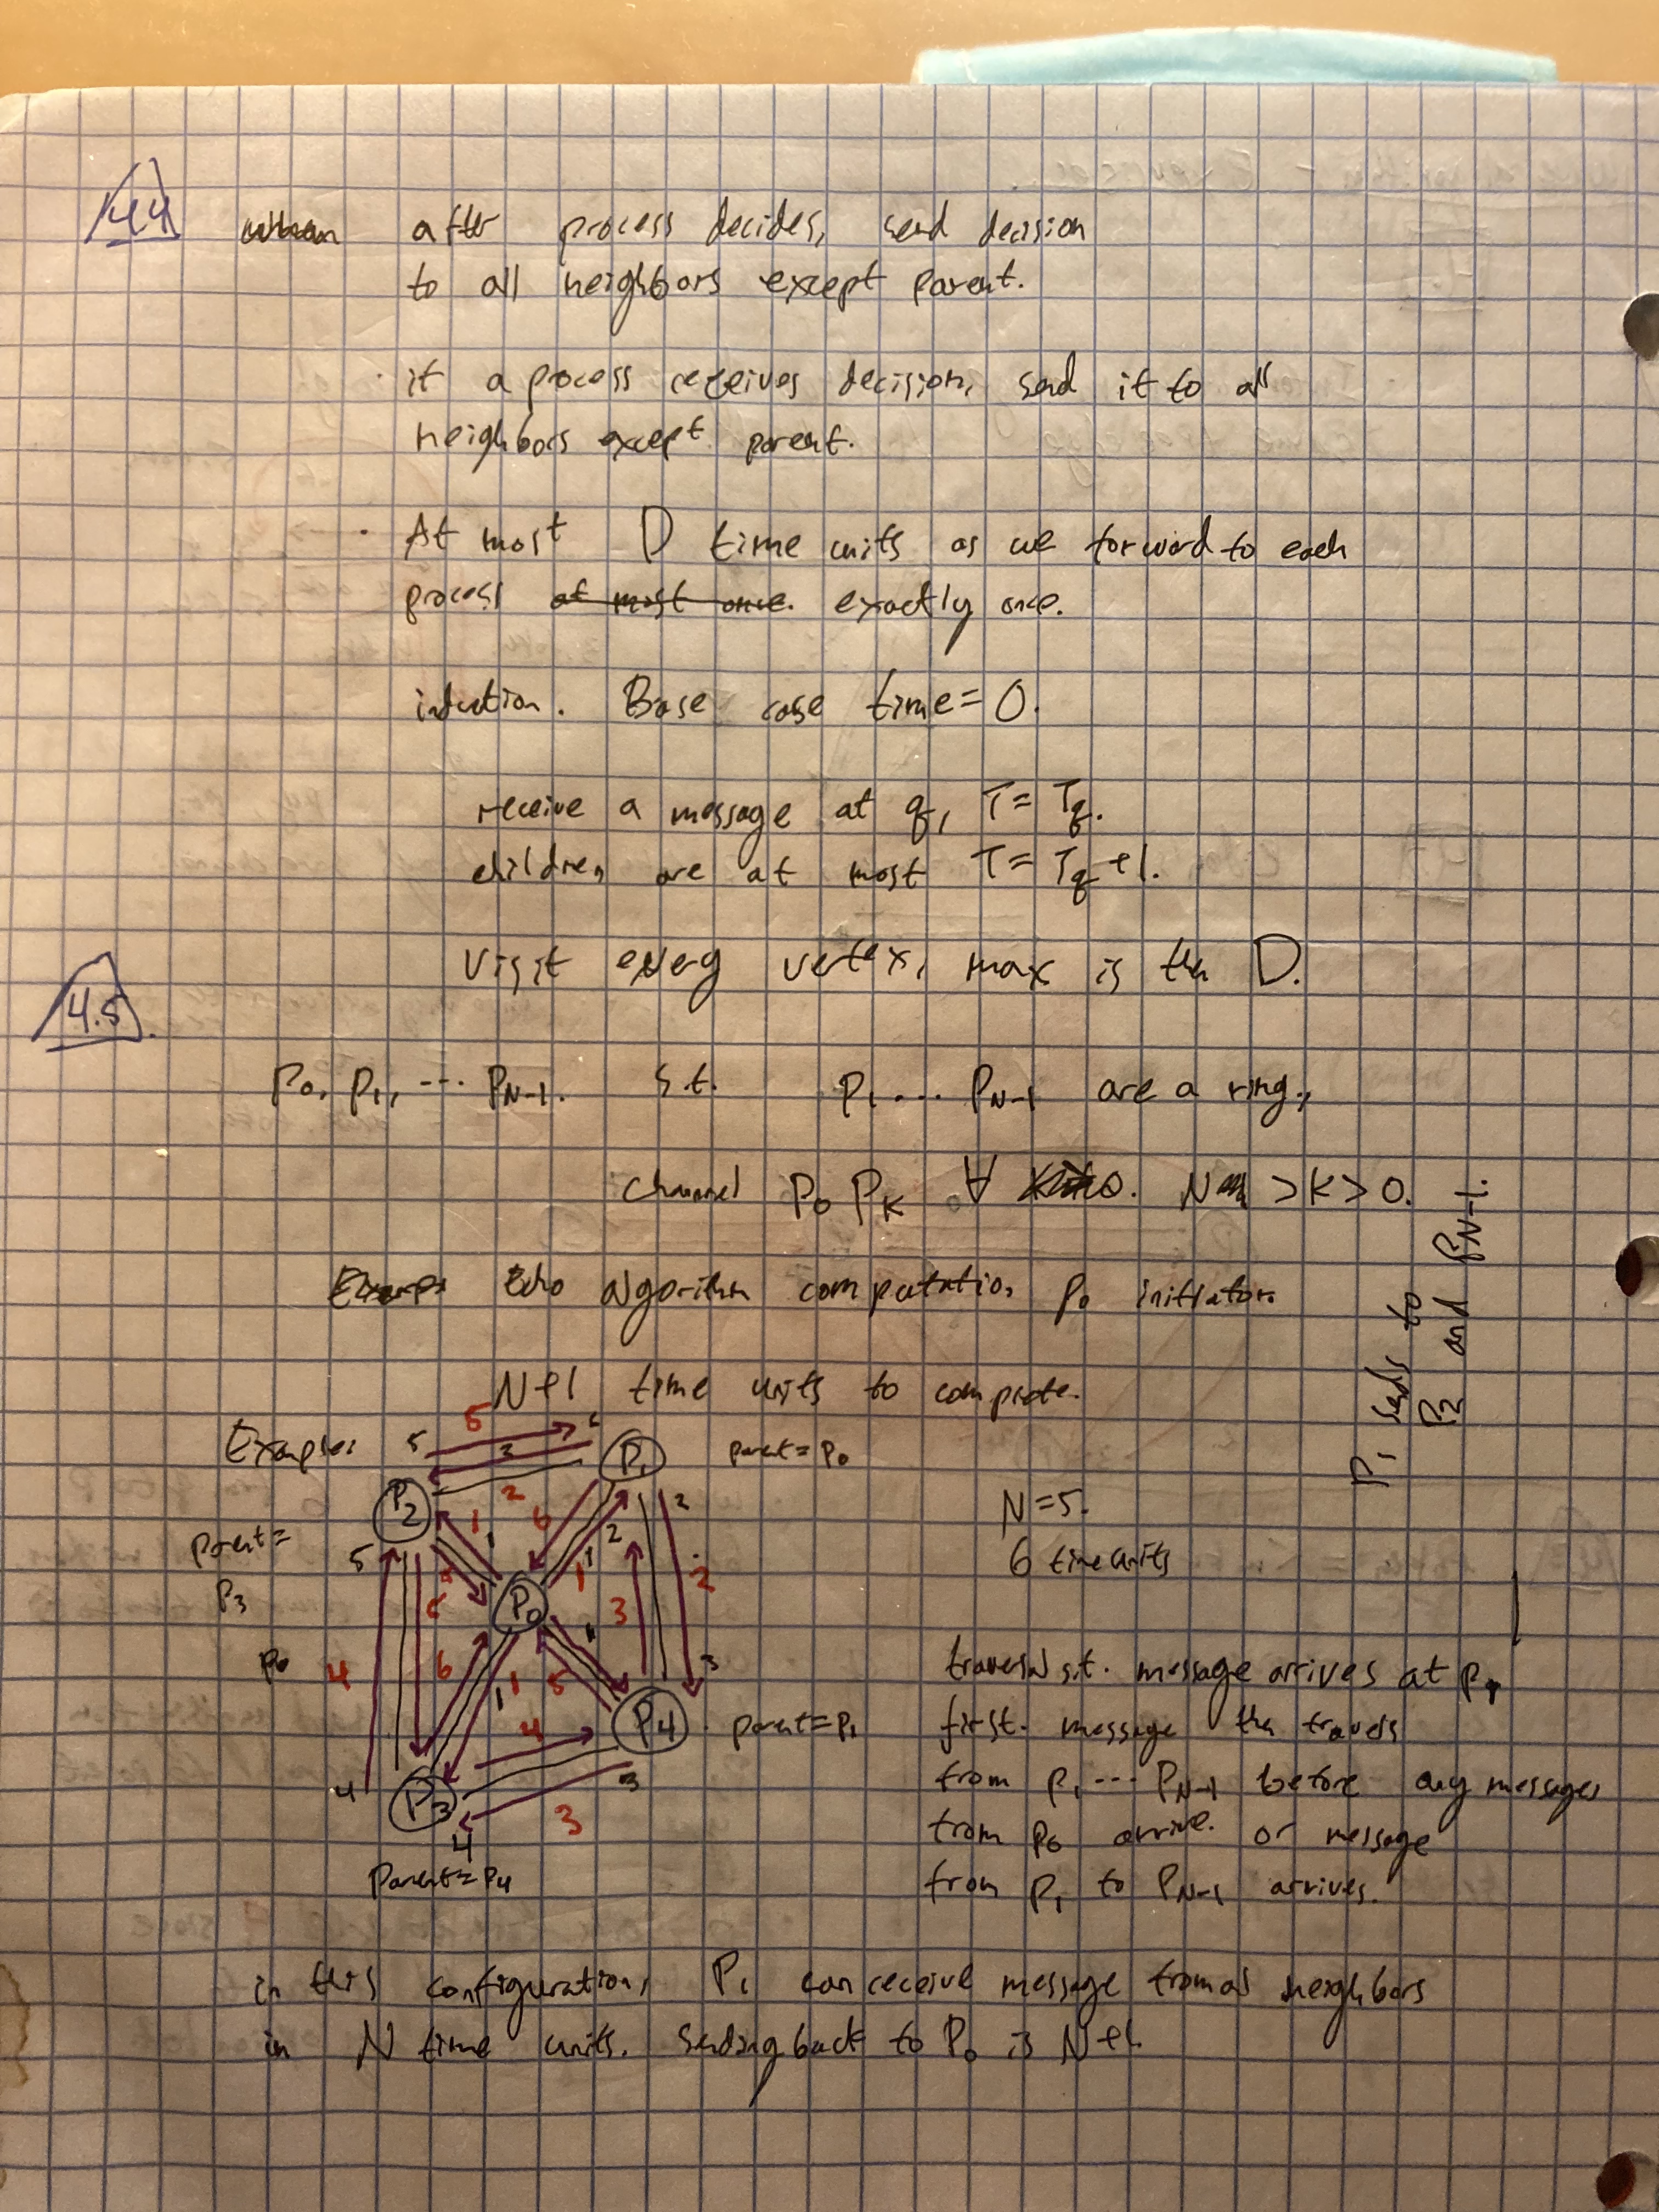 4.4
after process decides, send decision
to all neighbors except parent.
if a process receives decision, send it to all
neighbors except parent.
At most D time units as we forward to each
process at most once. exactly once.
induction. Base case time=0.
receive a message at q, T= Tq.
children are at most T= Tq+1.
Visit every vertex, max is the D.
4.5.
P0, P1, ... PN-1. s.t. P1 ... PN-1 are a ring,
channel P0 PK ∀ N > K > 0.
Echo algorithm computation, P0 initiator
N+1 time units to complete.
P1 sends to
P2 and PN-1.
Example:
5 5 3 2
P1 parent=P0
P2
N=5.
6 time units
parent=
P3
5 1 1 6 2 1 1 2 2
P0
P0
4 6 1 1 5 3 3
P4 parent=P1
4
P3
4 3 3
4
Parent=P4
traversal s.t. message arrives at P1
first. message then travels
from P1 ... PN-1 before any messages
from P0 arrive. or message
from P1 to PN-1 arrives.
in this configuration, P1 can receive message from all neighbors
in N time units. Sending back to P0 is N+1.